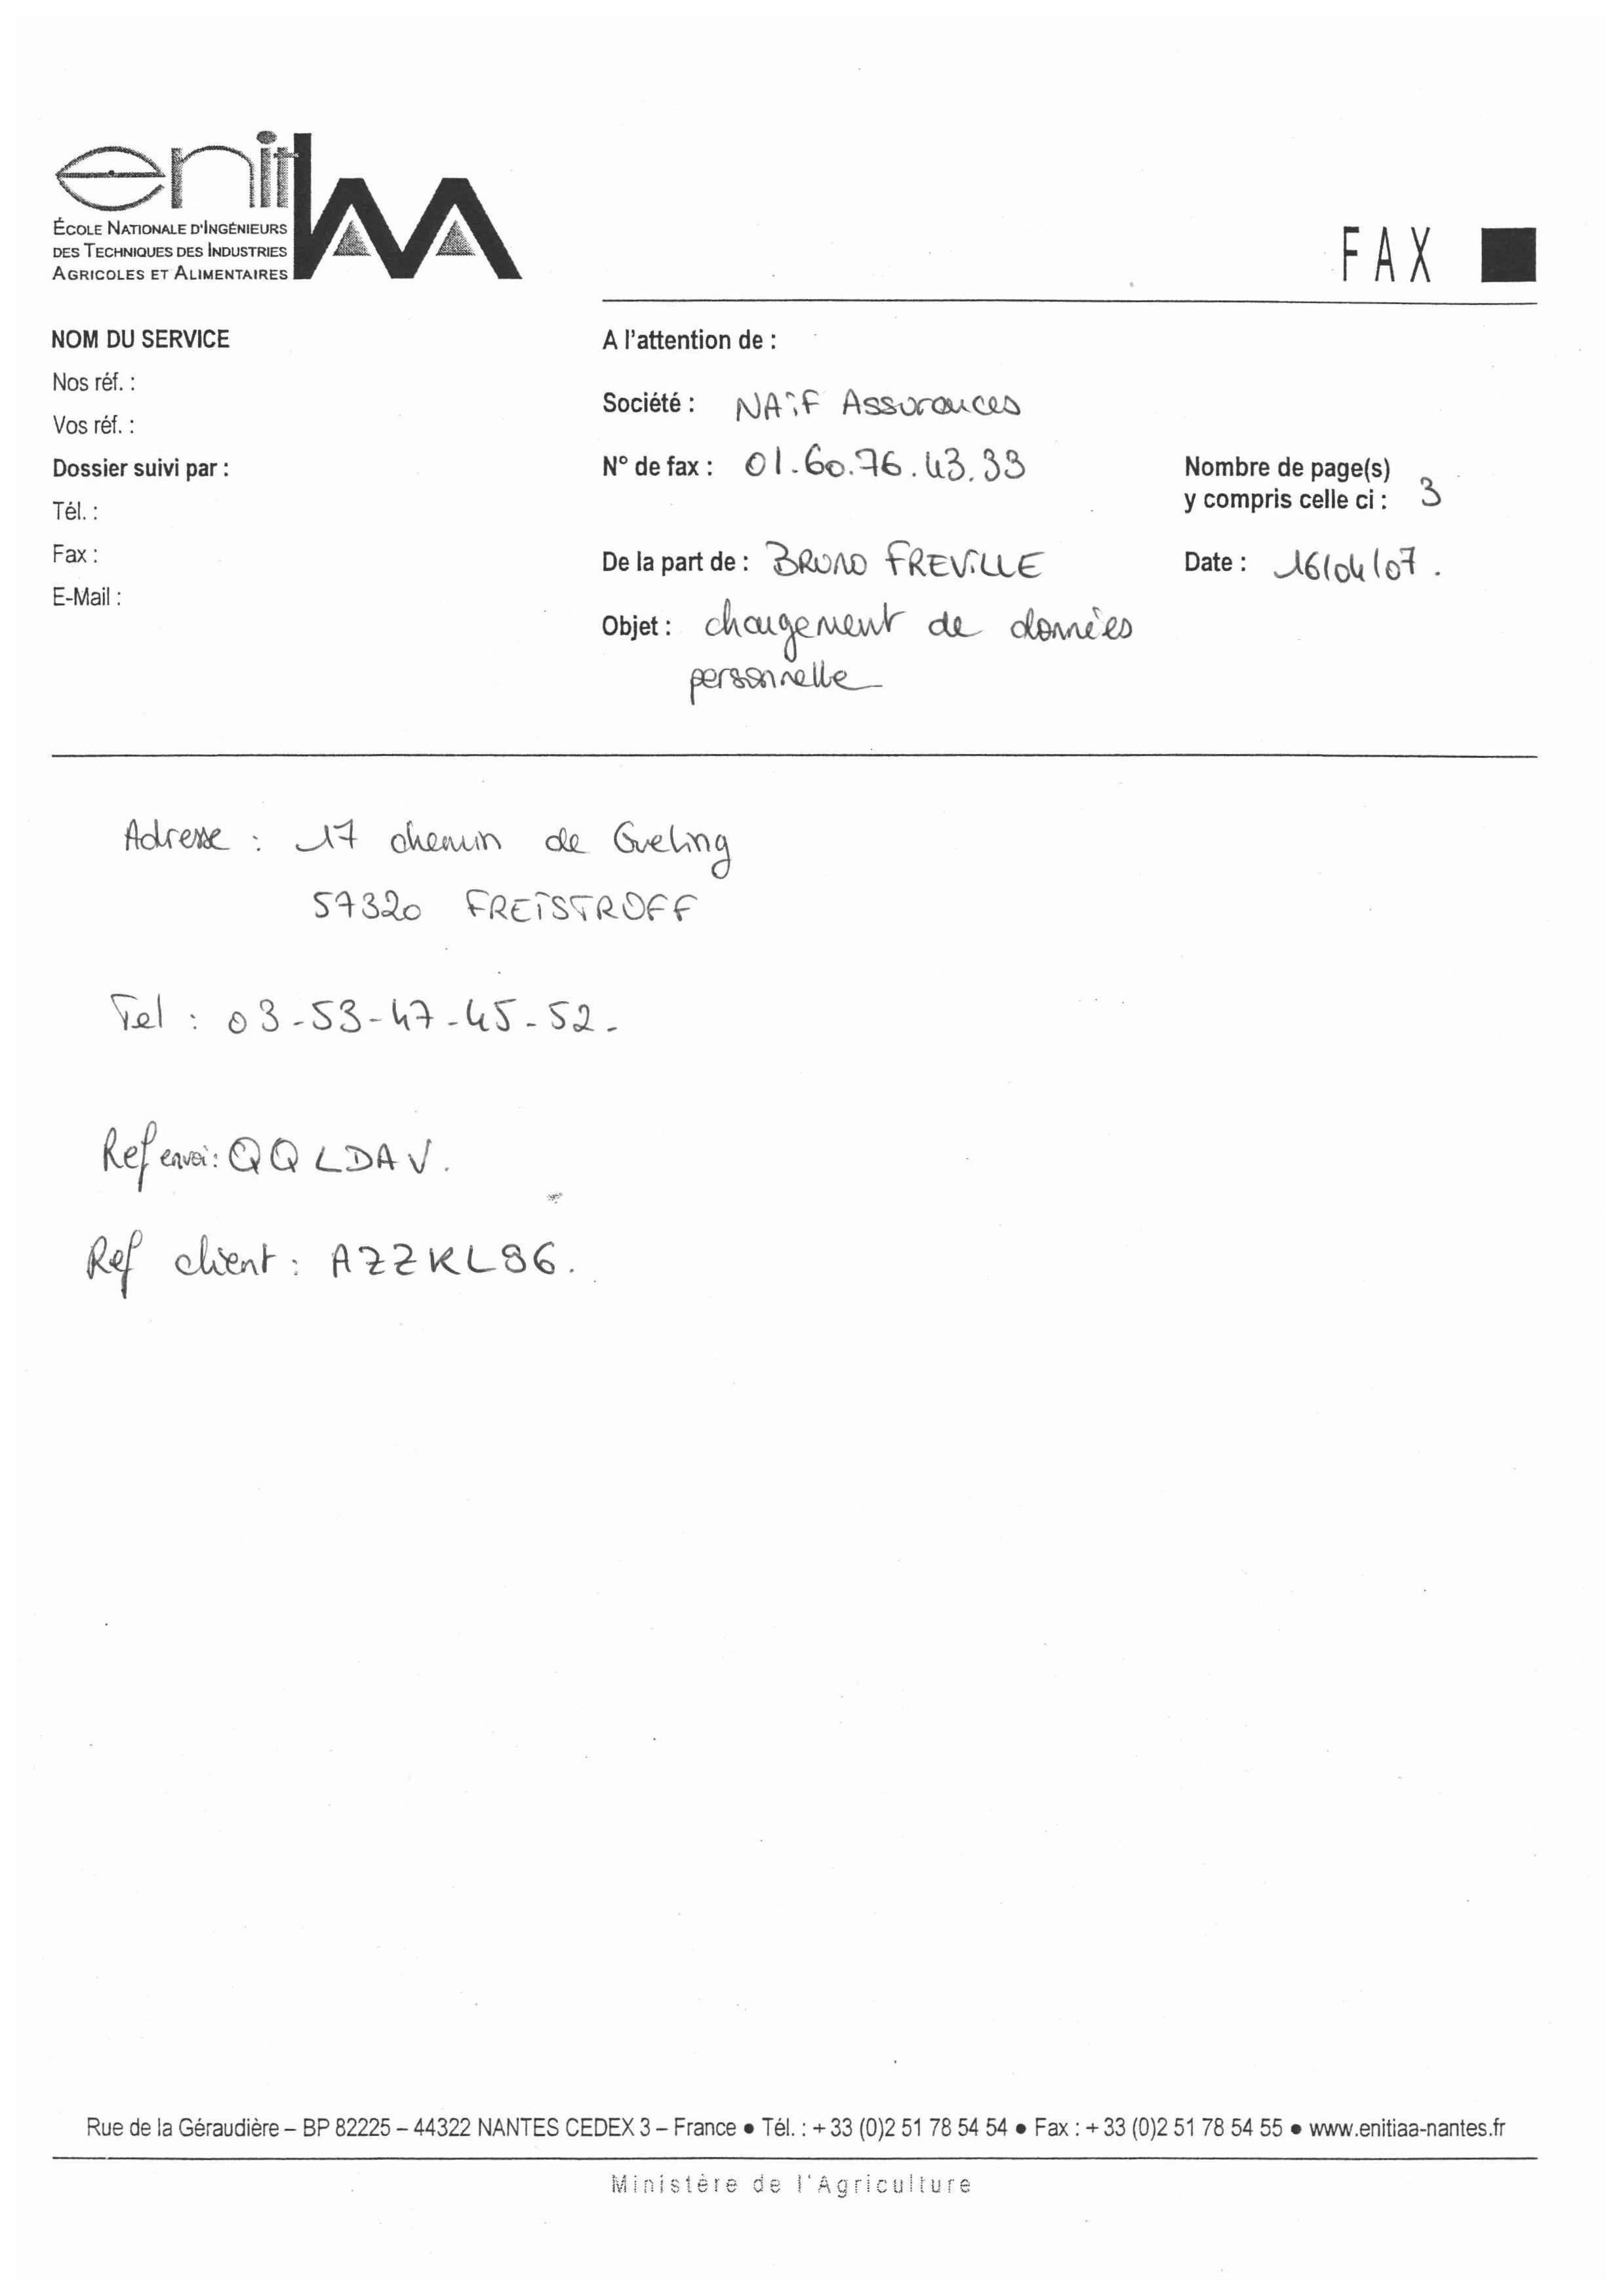 enitIAA
ÉCOLE NATIONALE D'INGÉNIEURS
DES TECHNIQUES DES INDUSTRIES
AGRICOLES ET ALIMENTAIRES
FAX
NOM DU SERVICE
Nos réf. :
Vos réf. :
Dossier suivi par :
Tél. :
Fax :
E-Mail :
A l'attention de :
Société : NAïF Assurances
N° de fax : 01.60.76.43.33
Nombre de page(s)
y compris celle ci : 3
De la part de : BRUNO FREVILLE
Date : 16/04/07.
Objet : changement de données
personnelle
Adresse : 17 chemin de Gueling
57320 FREISTROFF
Tel : 03-53-47-45-52-
Ref envoi : QQLDAV.
Ref client : AZZKL96.
Rue de la Géraudière – BP 82225 – 44322 NANTES CEDEX 3 – France ● Tél. : + 33 (0)2 51 78 54 54 ● Fax : + 33 (0)2 51 78 54 55 ● www.enitiaa-nantes.fr
Ministère de l'Agriculture